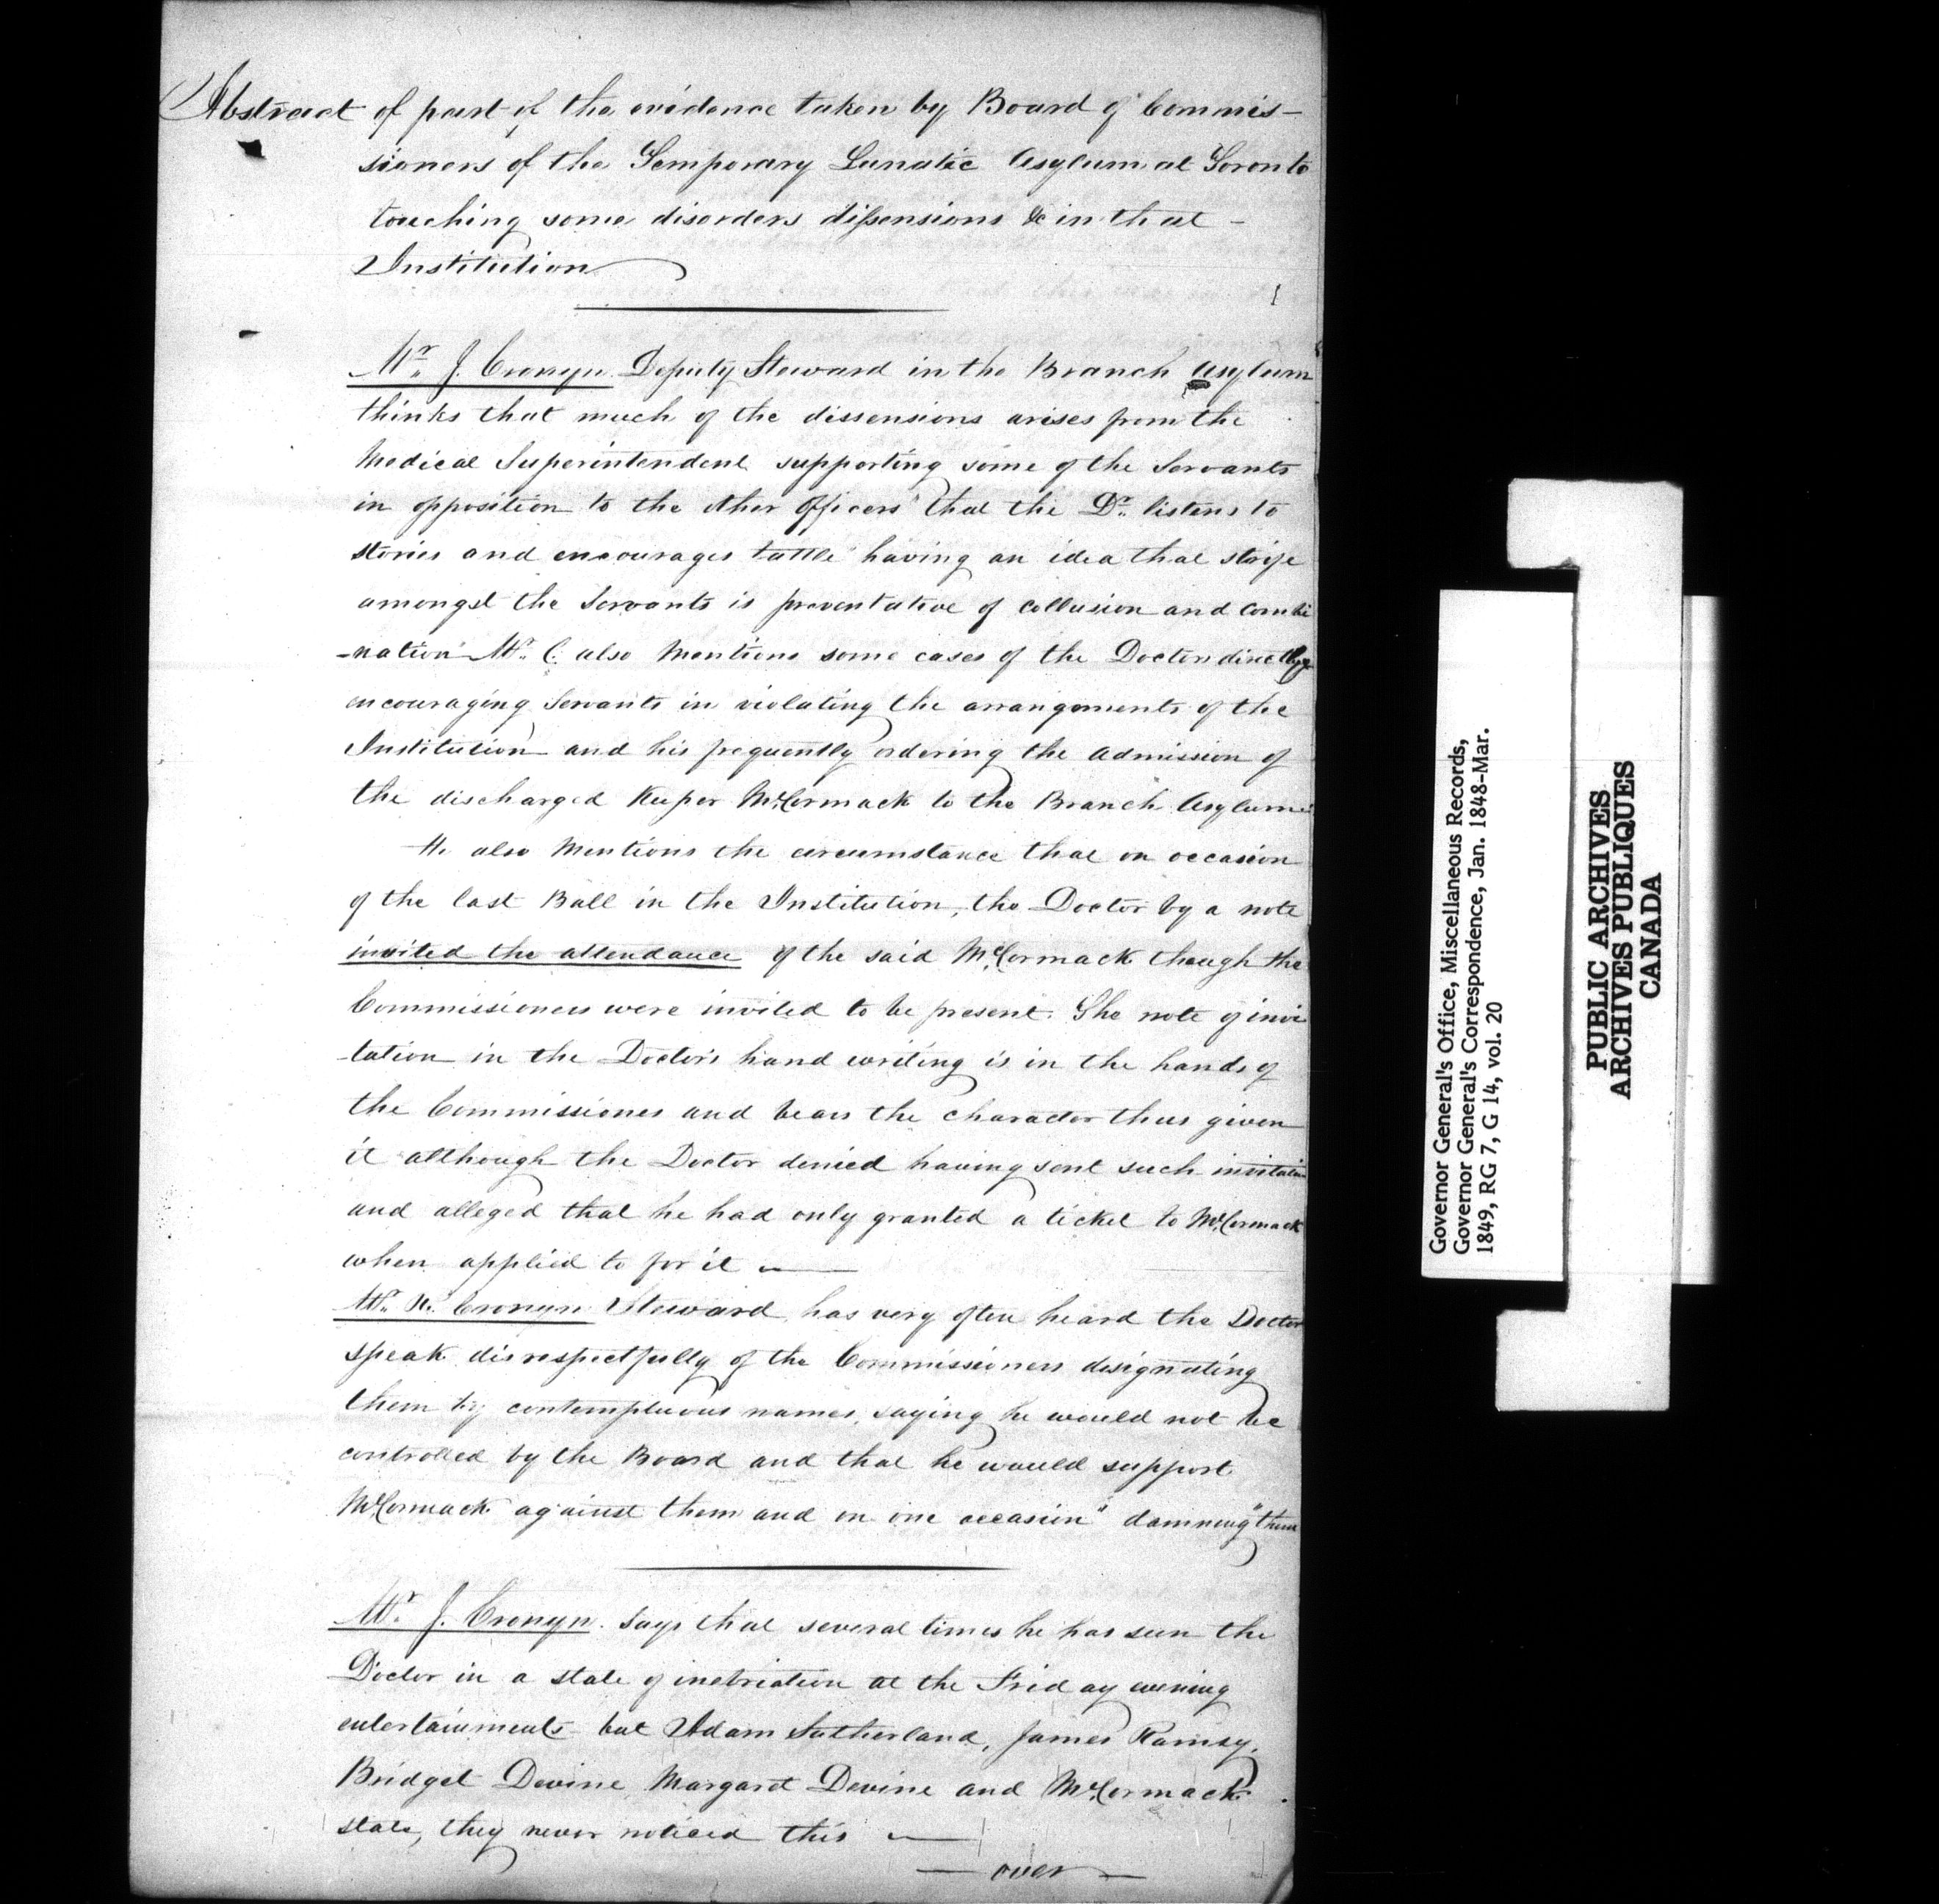 Abstract of part of the evidence taken by Board of Commis-
sioners of the Temporary Lunatic Asylum at Toronto
touching some disorders dissensions &c in that -
Institution
Mr. J. Cronyn Deputy Steward in the Branch Asylum
thinks that much of the dissensions arises from the
Medical Superintendent supporting some of the Servants
in opposition to the other Officers" that the Dr. listens to
stories and encourages tattle" having an idea that strife
amongst the Servants is preventative of collusion and combi
-nation" Mr. C. also Mentions some cases of the Doctors directly
encouraging Servants in violating the arrangements of the
Institution and his frequently ordering the admission of
the discharged Keeper McCormack to the Branch Asylum
He also Mentions the circumstance that on occasion
of the last Ball in the Institution, the Doctor by a note
invited the attendance of the said McCormack though the
Commissioners were invited to be present. The note of invi
tation in the Doctors hand writing is in the hands of
the Commissiones and bears the character thus given
it although the Doctor denied having sent such invitation
and alleged that he had only granted a ticket to McCormack
when applied to for it
Mr. Cronyn Steward has very often heard the Doctor
speak disrespectfully of the Commissioners designating
them by contemptuous names, saying he would not be
controlled by the Board and that he would support
McCormack against them and on one occasion "damning" them
Mr. J. Cronyn. Says that several times he has seen the
Doctor in a state of inebriation at the Friday evening
entertainments but Adam Sutherland, James Ramsy,
Bridget Devine, Margaret Devine and McCormack
state, they never noticed this
— over —
Governor General's Office, Miscellaneous Records,
Governor General's Correspondence, Jan. 1848-Mar.
1849, RG 7, G 14, vol. 20
PUBLIC ARCHIVES
ARCHIVES PUBLIQUES
CANADA